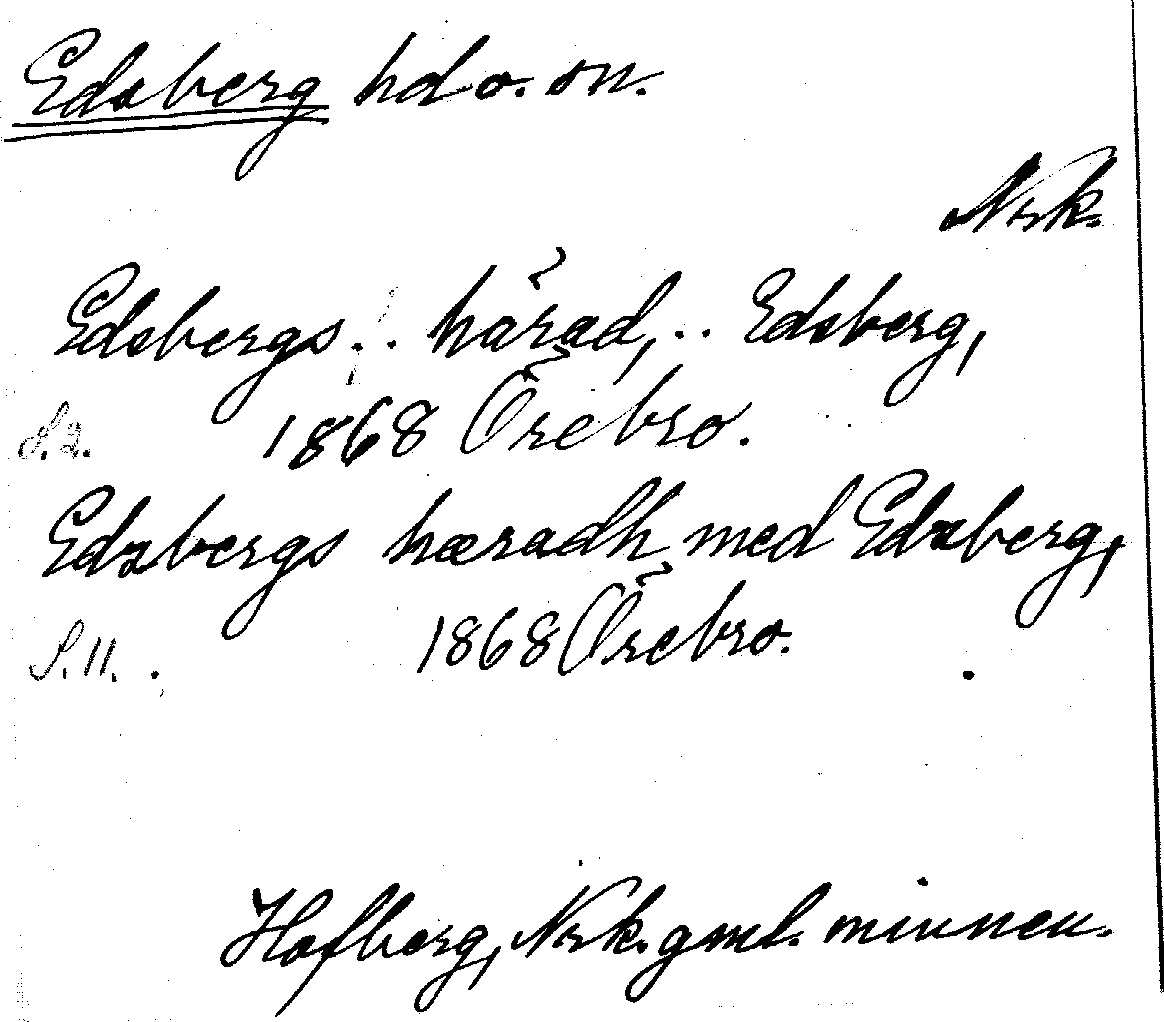 Edsberg hd o. sn.
Nrk.
Edsbergs .. härad, .. Edsberg,
S. 2. 1868 Örebro.
Edzbergs hæradh med Edzberg,
S. 11. 1868 Örebro.
Hofberg, Nrk. gml. minnen.